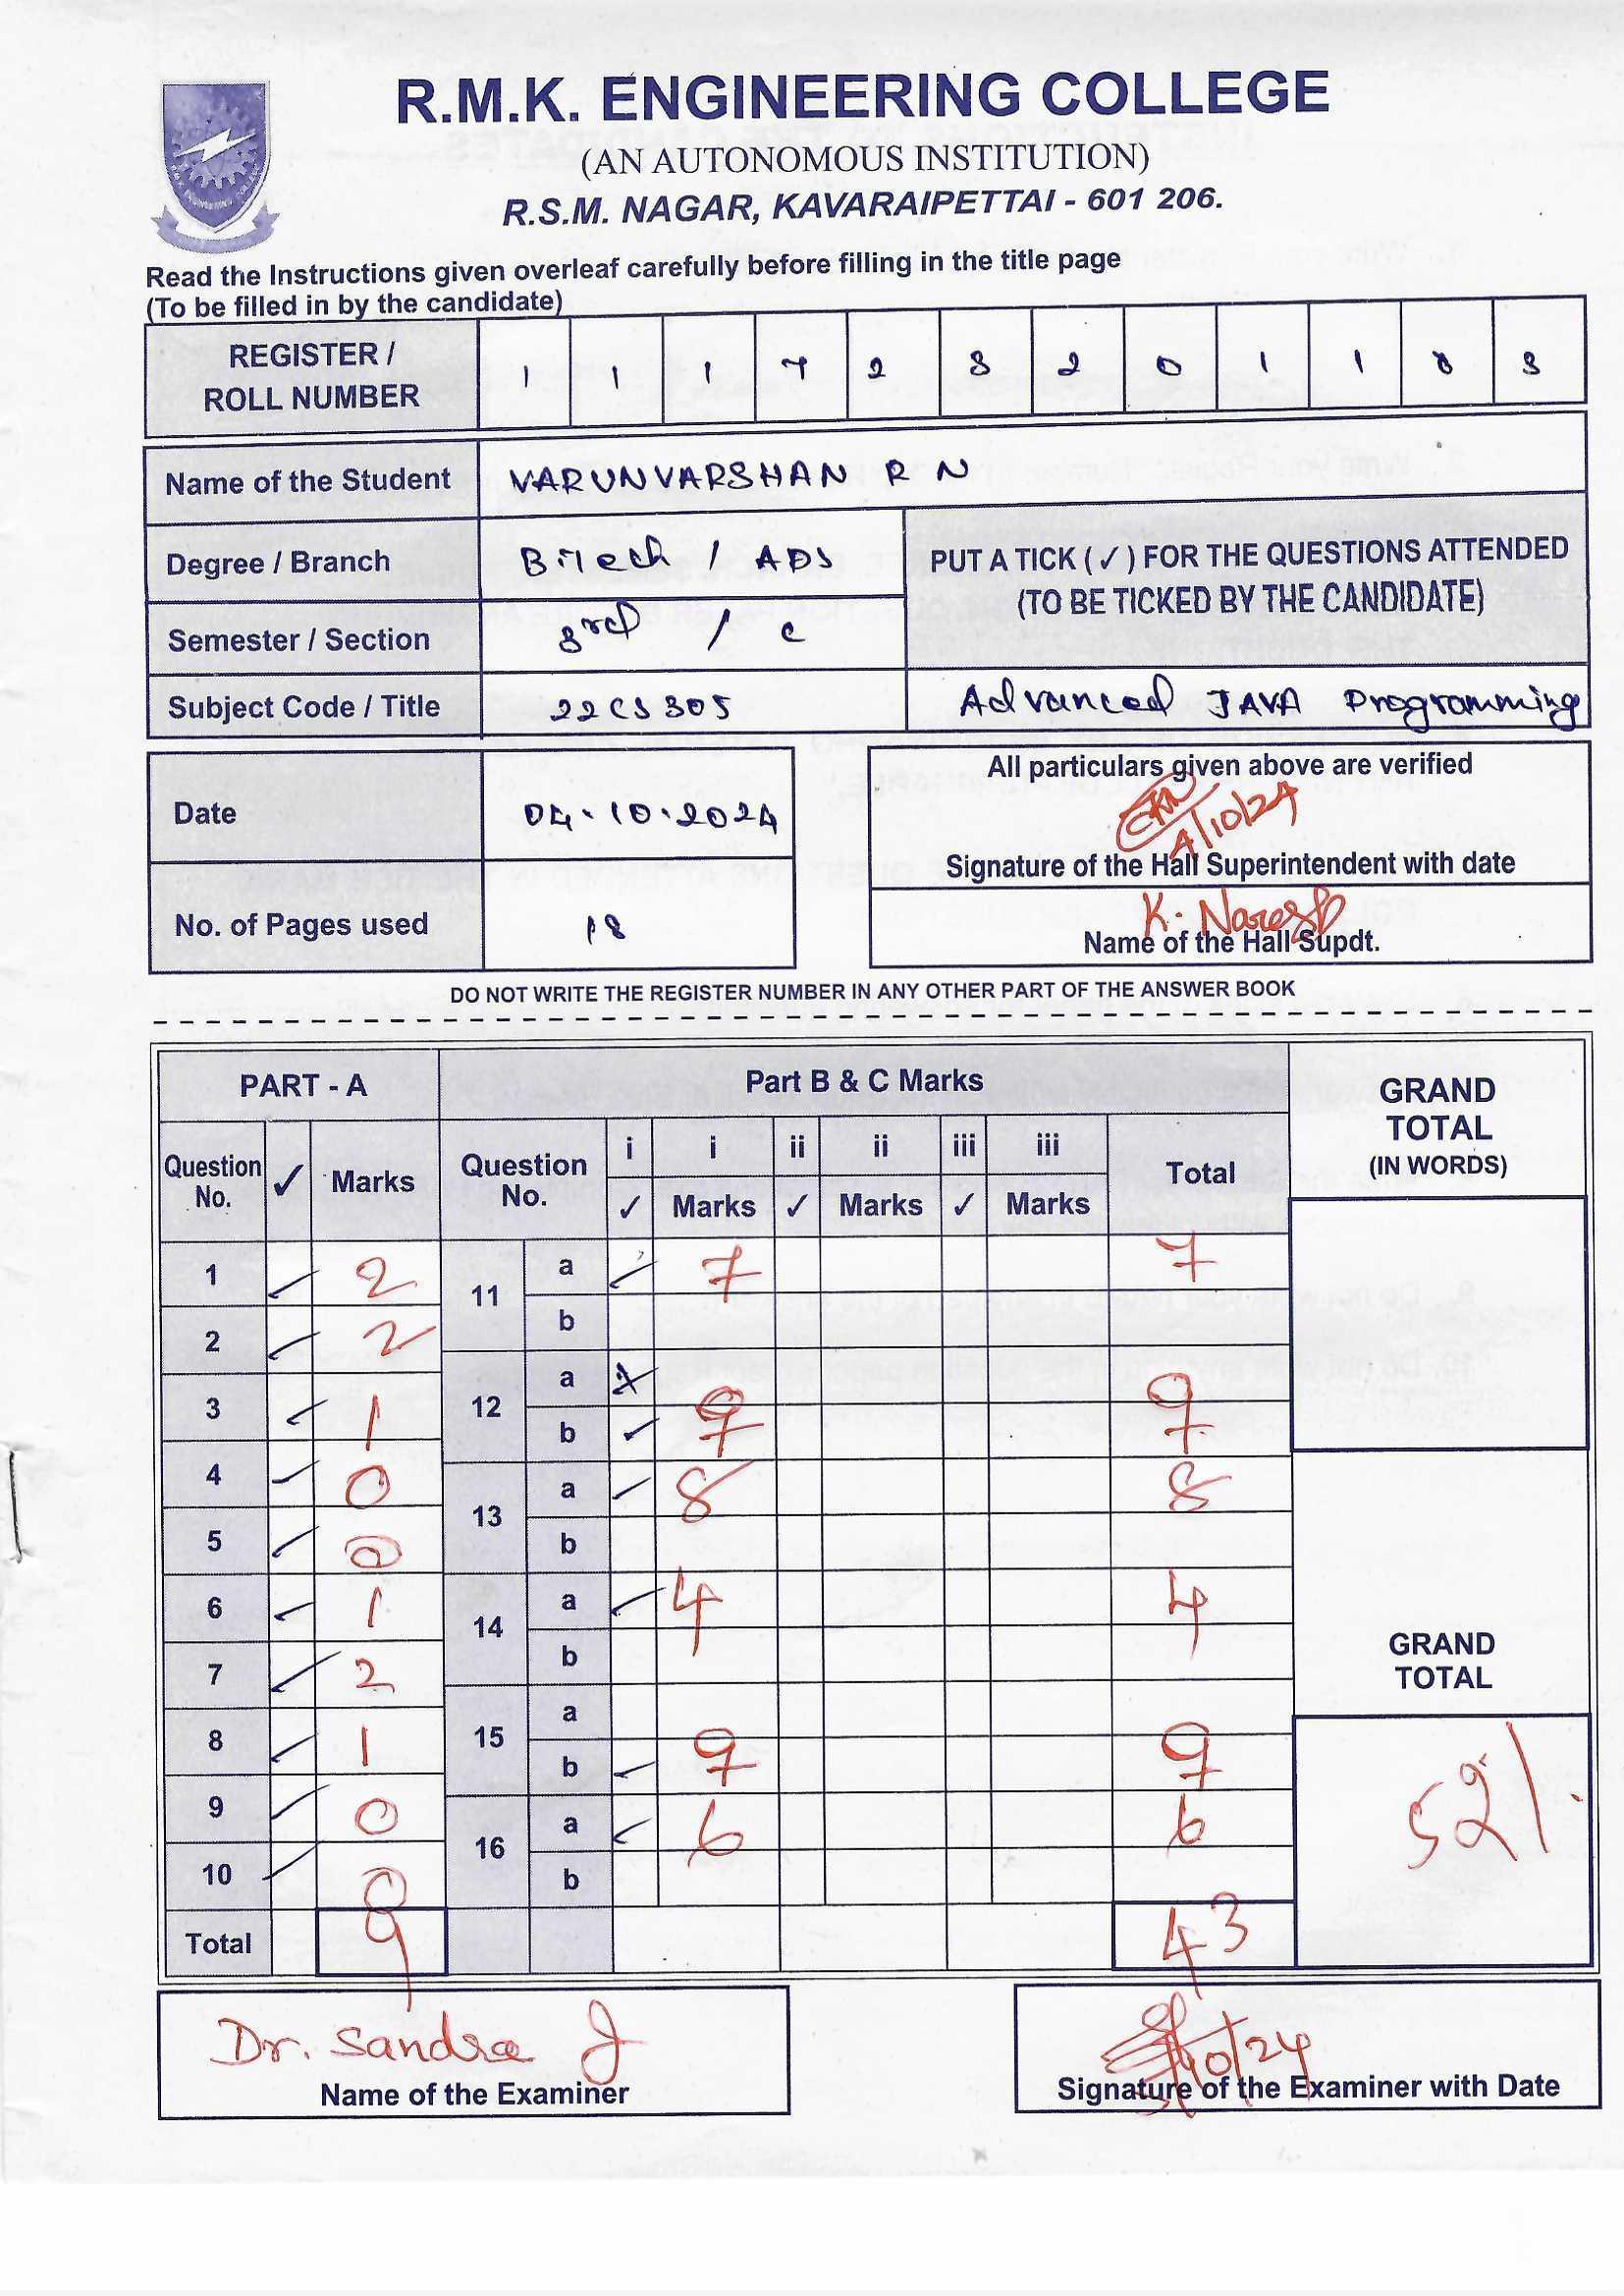 R.M.K. ENGINEERING COLLEGE
(AN AUTONOMOUS INSTITUTION)
R.S.M. NAGAR, KAVARAIPETTAI - 601 206.
Read the Instructions given overleaf carefully before filling in the title page
(To be filled in by the candidate)
REGISTER / ROLL NUMBER 1 1 1 7 2 3 2 0 1 1 8 3
Name of the Student VARUNVARSHAN R N
Degree / Branch B.Tech / ADS
PUT A TICK (✓) FOR THE QUESTIONS ATTENDED
(TO BE TICKED BY THE CANDIDATE)
Semester / Section 3rd / C
Subject Code / Title 22CS305 Advanced JAVA Programming
Date 04.10.2024
All particulars given above are verified
4/10/24
Signature of the Hall Superintendent with date
No. of Pages used 18
K. Naresh
Name of the Hall Supdt.
DO NOT WRITE THE REGISTER NUMBER IN ANY OTHER PART OF THE ANSWER BOOK
PART - A Part B & C Marks GRAND TOTAL (IN WORDS)
Question No. ✓ Marks Question No. i ✓ i Marks ii ✓ ii Marks iii ✓ iii Marks Total
1 ✓ 2
2 ✓ 2
3 ✓ 1
4 ✓ 0
5 ✓ 0
6 ✓ 1
7 ✓ 2
8 ✓ 1
9 ✓ 0
10 ✓ 0
Total 9
11 a ✓ 7 7
b
12 a
b ✓ 9 9
13 a ✓ 8 8
b
14 a ✓ 4 4
b
15 a
b ✓ 9 9
16 a ✓ 6 6
b
43
GRAND TOTAL
52
Dr. Sandra J
Name of the Examiner
Signature of the Examiner with Date